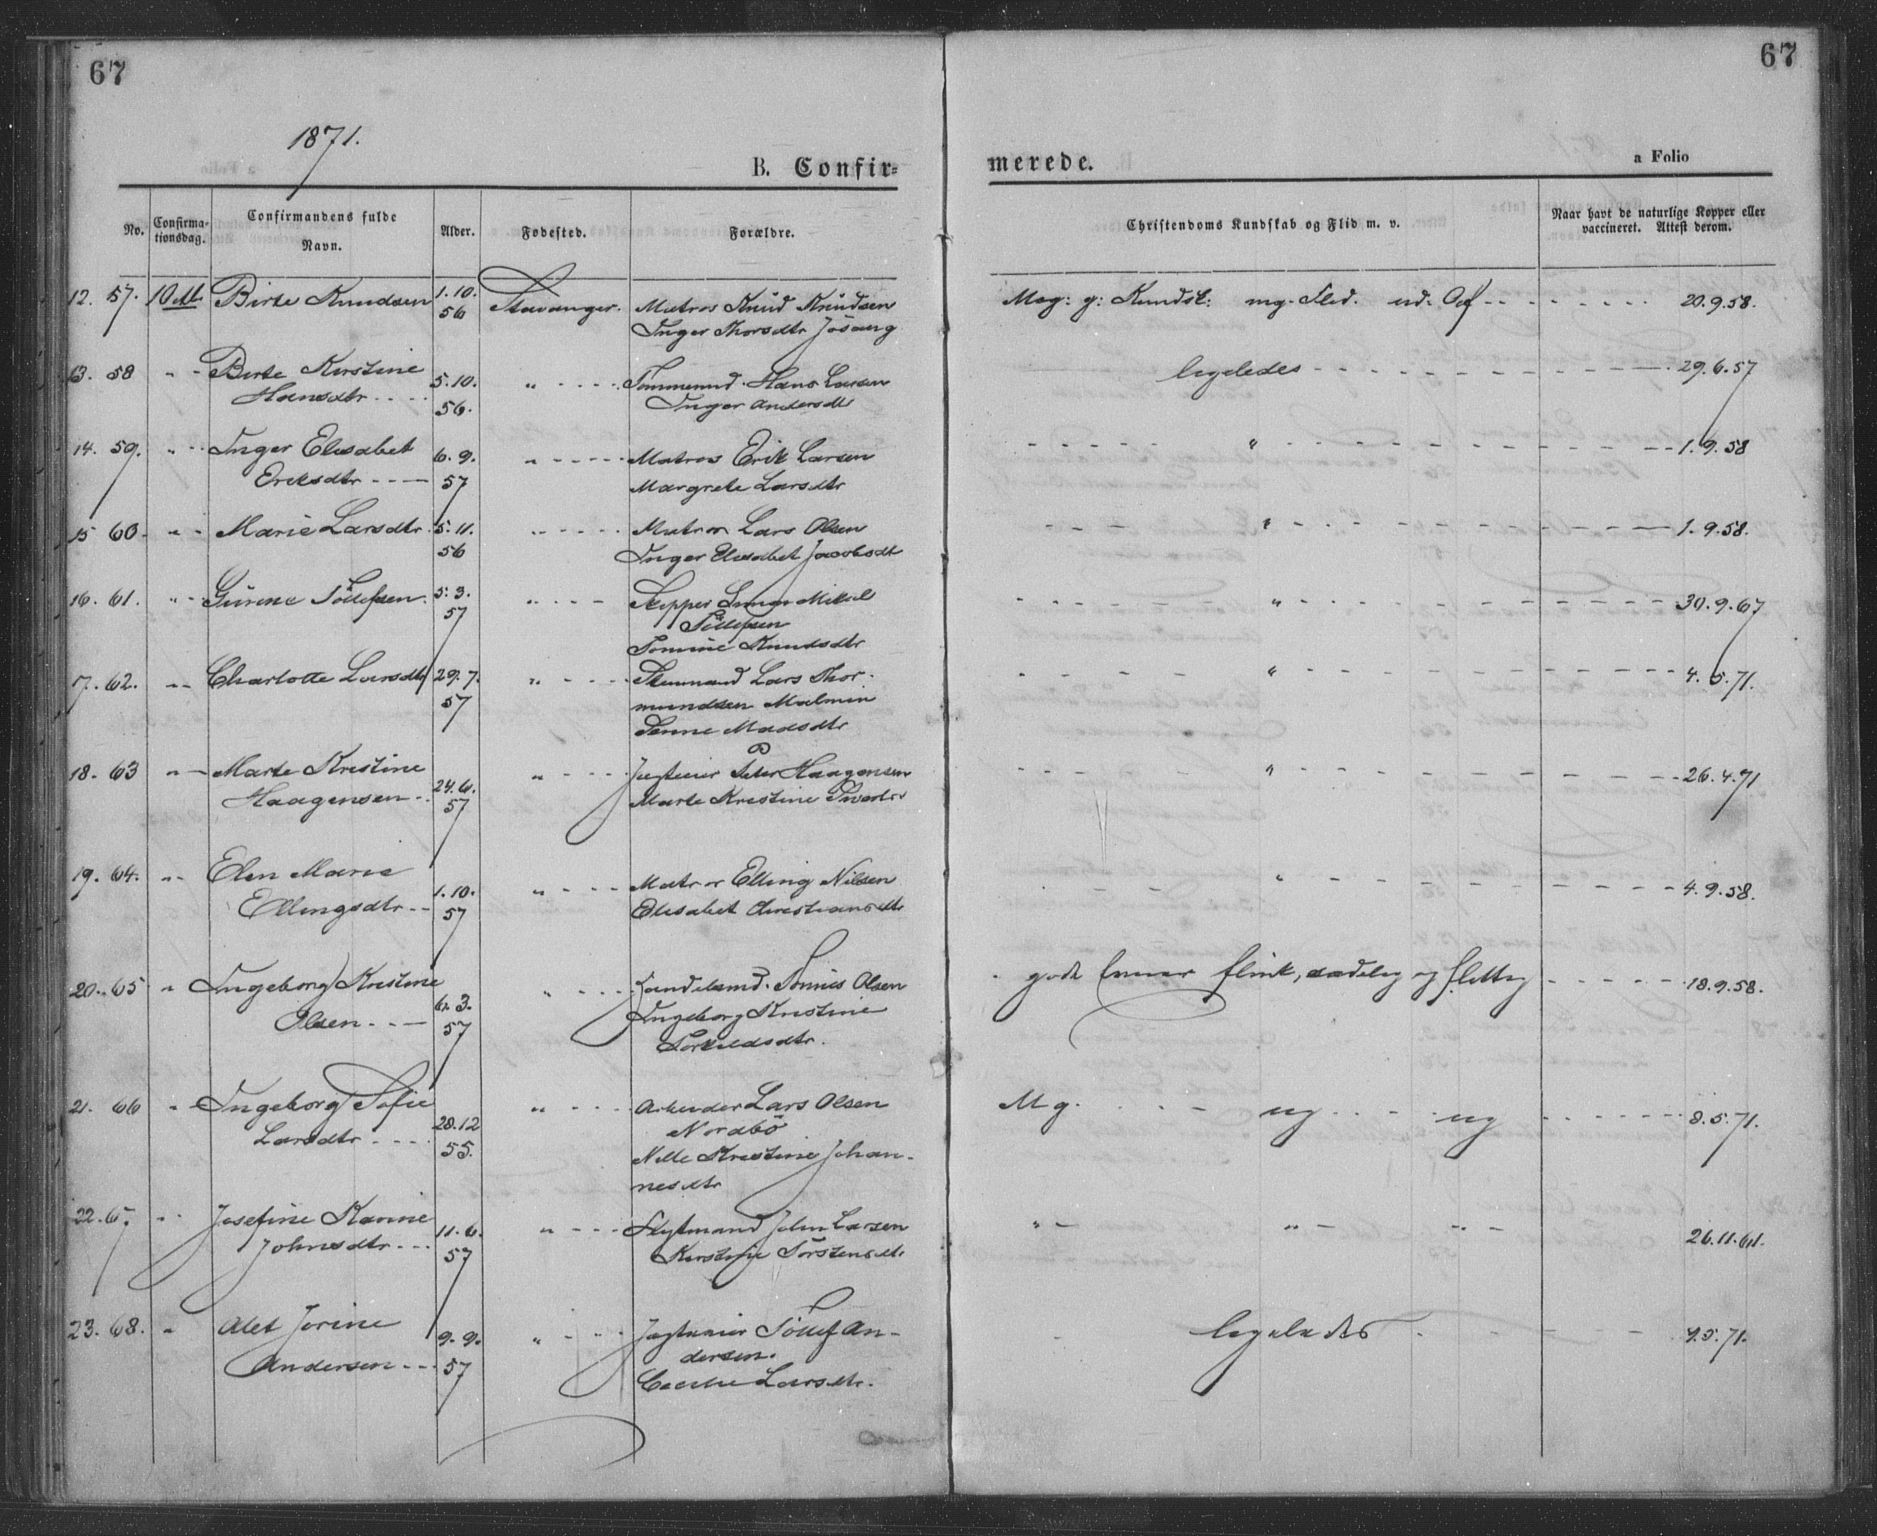 67
67
1871.
B. Confir-
merede.
a Folio
No.
Confirma-
tionsdag.
Confirmandens fulde
Navn.
Alder.
Fødested.
Forældre.
Christendoms Kundskab og Flid m. v.
Naar havt de naturlige Kopper eller
vaccineret. Attest derom.
12. 57. Birte Knudsen 1.10. Stavanger. Matros Knud Knudsen Mag: g: Kundsk: mg. Flid. 20.9.58.
56 Inger Thorsdtr Jösang
13. 58 " Birte Kirstine 5.10. " Tømmermd. Hans Larsen ligeledes 29.6.57
Hansdtr 56. Inger Andersdtr
14. 59. " Inger Elisabet 6.9. " Matros Erik Larsen " 1.9.58
Eriksdtr 57 Margrete Larsdtr
15 60. " Marie Larsdtr. 5.11. " Matros Lars Olsen " 1.9.58.
56 Inger Elisabet Jacobsdt
16. 61. " Gurine Töllefsen. 5.3. " Skipper Mikal " 30.9.67
57 Töllefsen
Tomine Knudsdtr
7. 62. " Charlotte Larsdtr 29.7. " Lars Thor- " 4.5.71.
57 mundsen Malmin
Madsdtr
18. 63 " Marte Kristine 24.6. " Peter Haagensen " 26.4.71
Haagensen 57 Marte Kristine
19. 64. " Elen Marie 1.10. " Matros Elling Nilsen " 4.9.58.
Ellingsdtr 57 Elisabet Christiansdtr
20. 65 " Ingeborg Kristine 6.3. " Handelsmd. Tönnes Olsen gode Evner flink, sædelig og flittig 18.9.58.
Olsen 57 Ingeborg Kristine
Torkildsdtr.
21. 66 " Ingeborg Sofie 28.12 " Arbeider Lars Olsen Mg. mg mg 8.5.71.
Larsdtr 55. Nordbö
Nille Kristine Johan-
nesdtr
22. 67. " Josefine Karine 11.6. " Flytmand John Larsen " " " 26.11.61.
Johnsdtr 57 Kirstine Torstensdtr.
23. 68. " Alet Jorine 9.9. " Töllef An- ligeledes 9.5.71.
Andersen 57 dersen.
Cecilie Larsdtr.